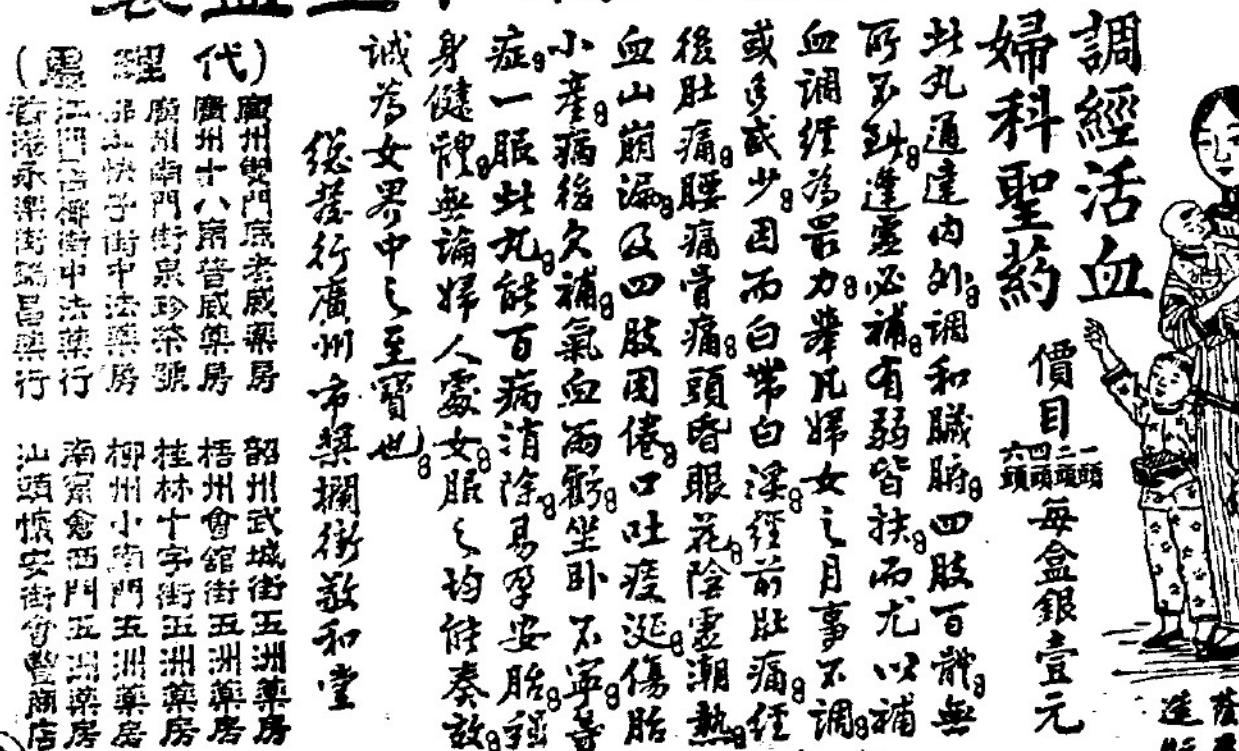 調經活血
婦科聖葯
價目
一頭
二頭
四頭
六頭
每盒銀壹元
此丸通達內外調和臟腑四肢百體無
所不到逢虛必補有弱皆扶而尤以補
血調經為最力舉凡婦女之月事不調
或多或少因而白帶白淫經前肚痛經
後肚痛腰痛骨痛頭昏眼花陰虛潮熱
血山崩漏及四肢困倦口吐痰涎傷胎
小產病後欠補氣血兩虧坐卧不寧等
症一服此丸能百病消除易孕安胎種
身健體無論婦人處女服之均能奏效
誠為女界中之至寶也
總發行廣州市槳欄街敬和堂
(代理處)
廣州雙門底老威藥房
廣州十八甫普威藥房
廣州南門街泉珍茶號
快子街中法藥房
江門街中法藥行
香港永樂街鴻昌藥行
韶州武城街五洲藥房
梧州會館街五洲藥房
桂林十字街五洲藥房
柳州小南門五洲藥房
南寧倉西門五洲藥房
汕頭懷安街會豐商店